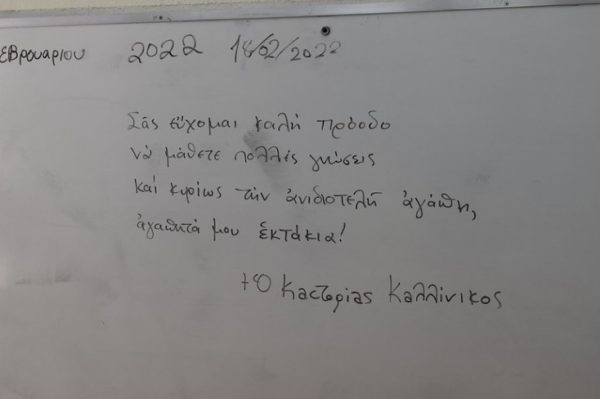 εβρουαρίου 2022 18/02/2022
Σᾶς εὔχομαι καλή πρόοδο
νά μάθετε πολλές γνώσεις
καί κυρίως τήν ἀνιδιοτελή ἀγάπη,
ἀγαπητά μου ἑκτάκια!
+Ὁ Καστορίας Καλλίνικος